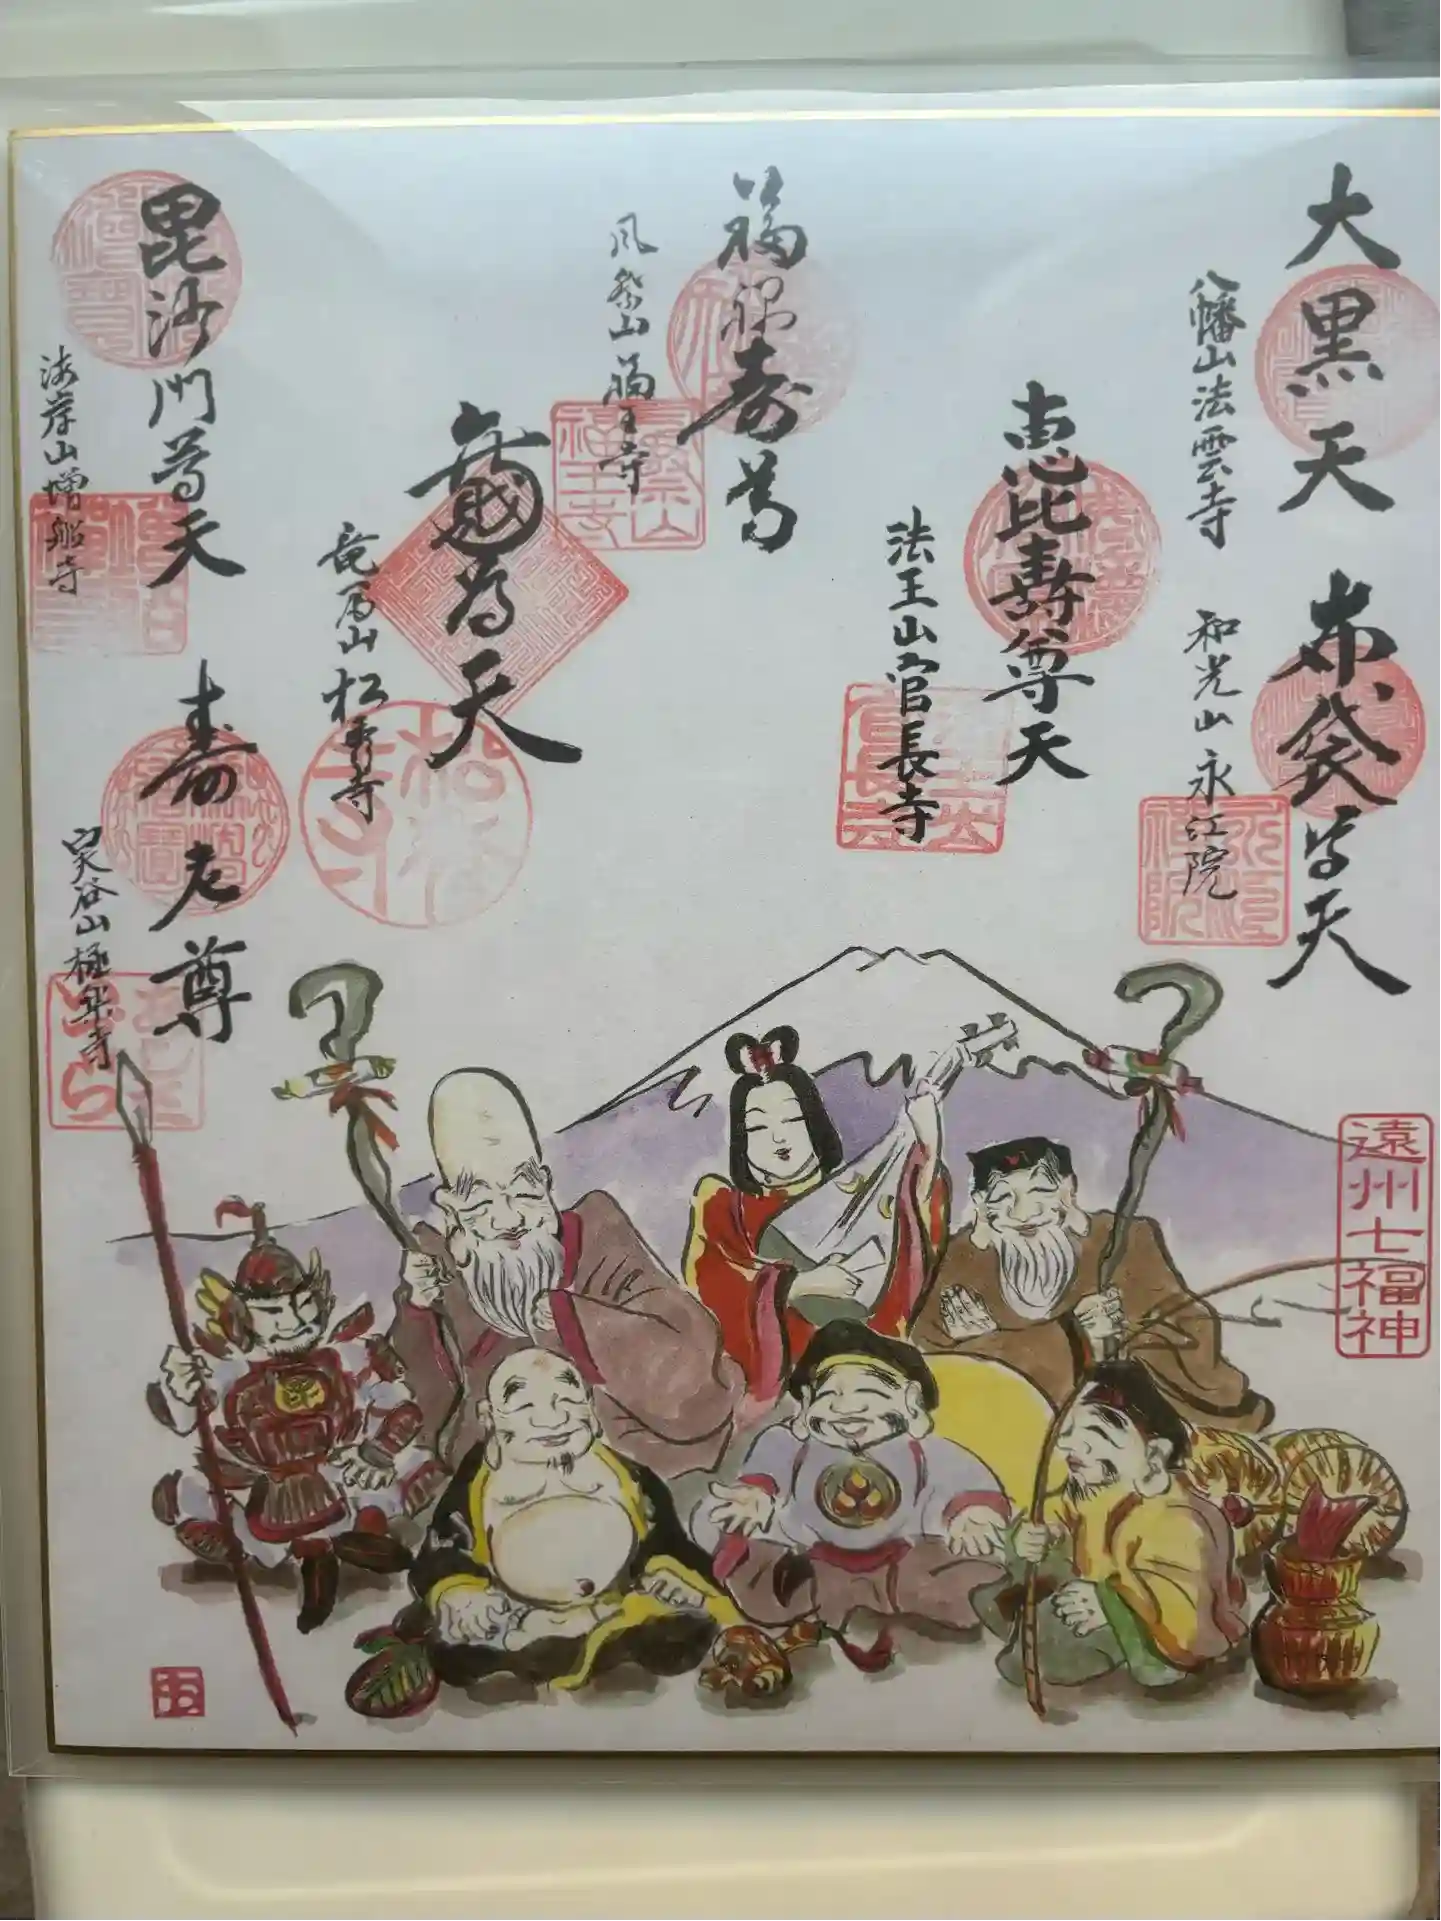 大黒天
八幡山法雲寺
布袋尊天
和光山永江院
恵比寿尊天
法王山官長寺
福禄寿尊
風祭山福王寺
松秀寺
毘沙門尊天
海岸山増船寺
寿老尊
実谷山極楽寺
遠州七福神